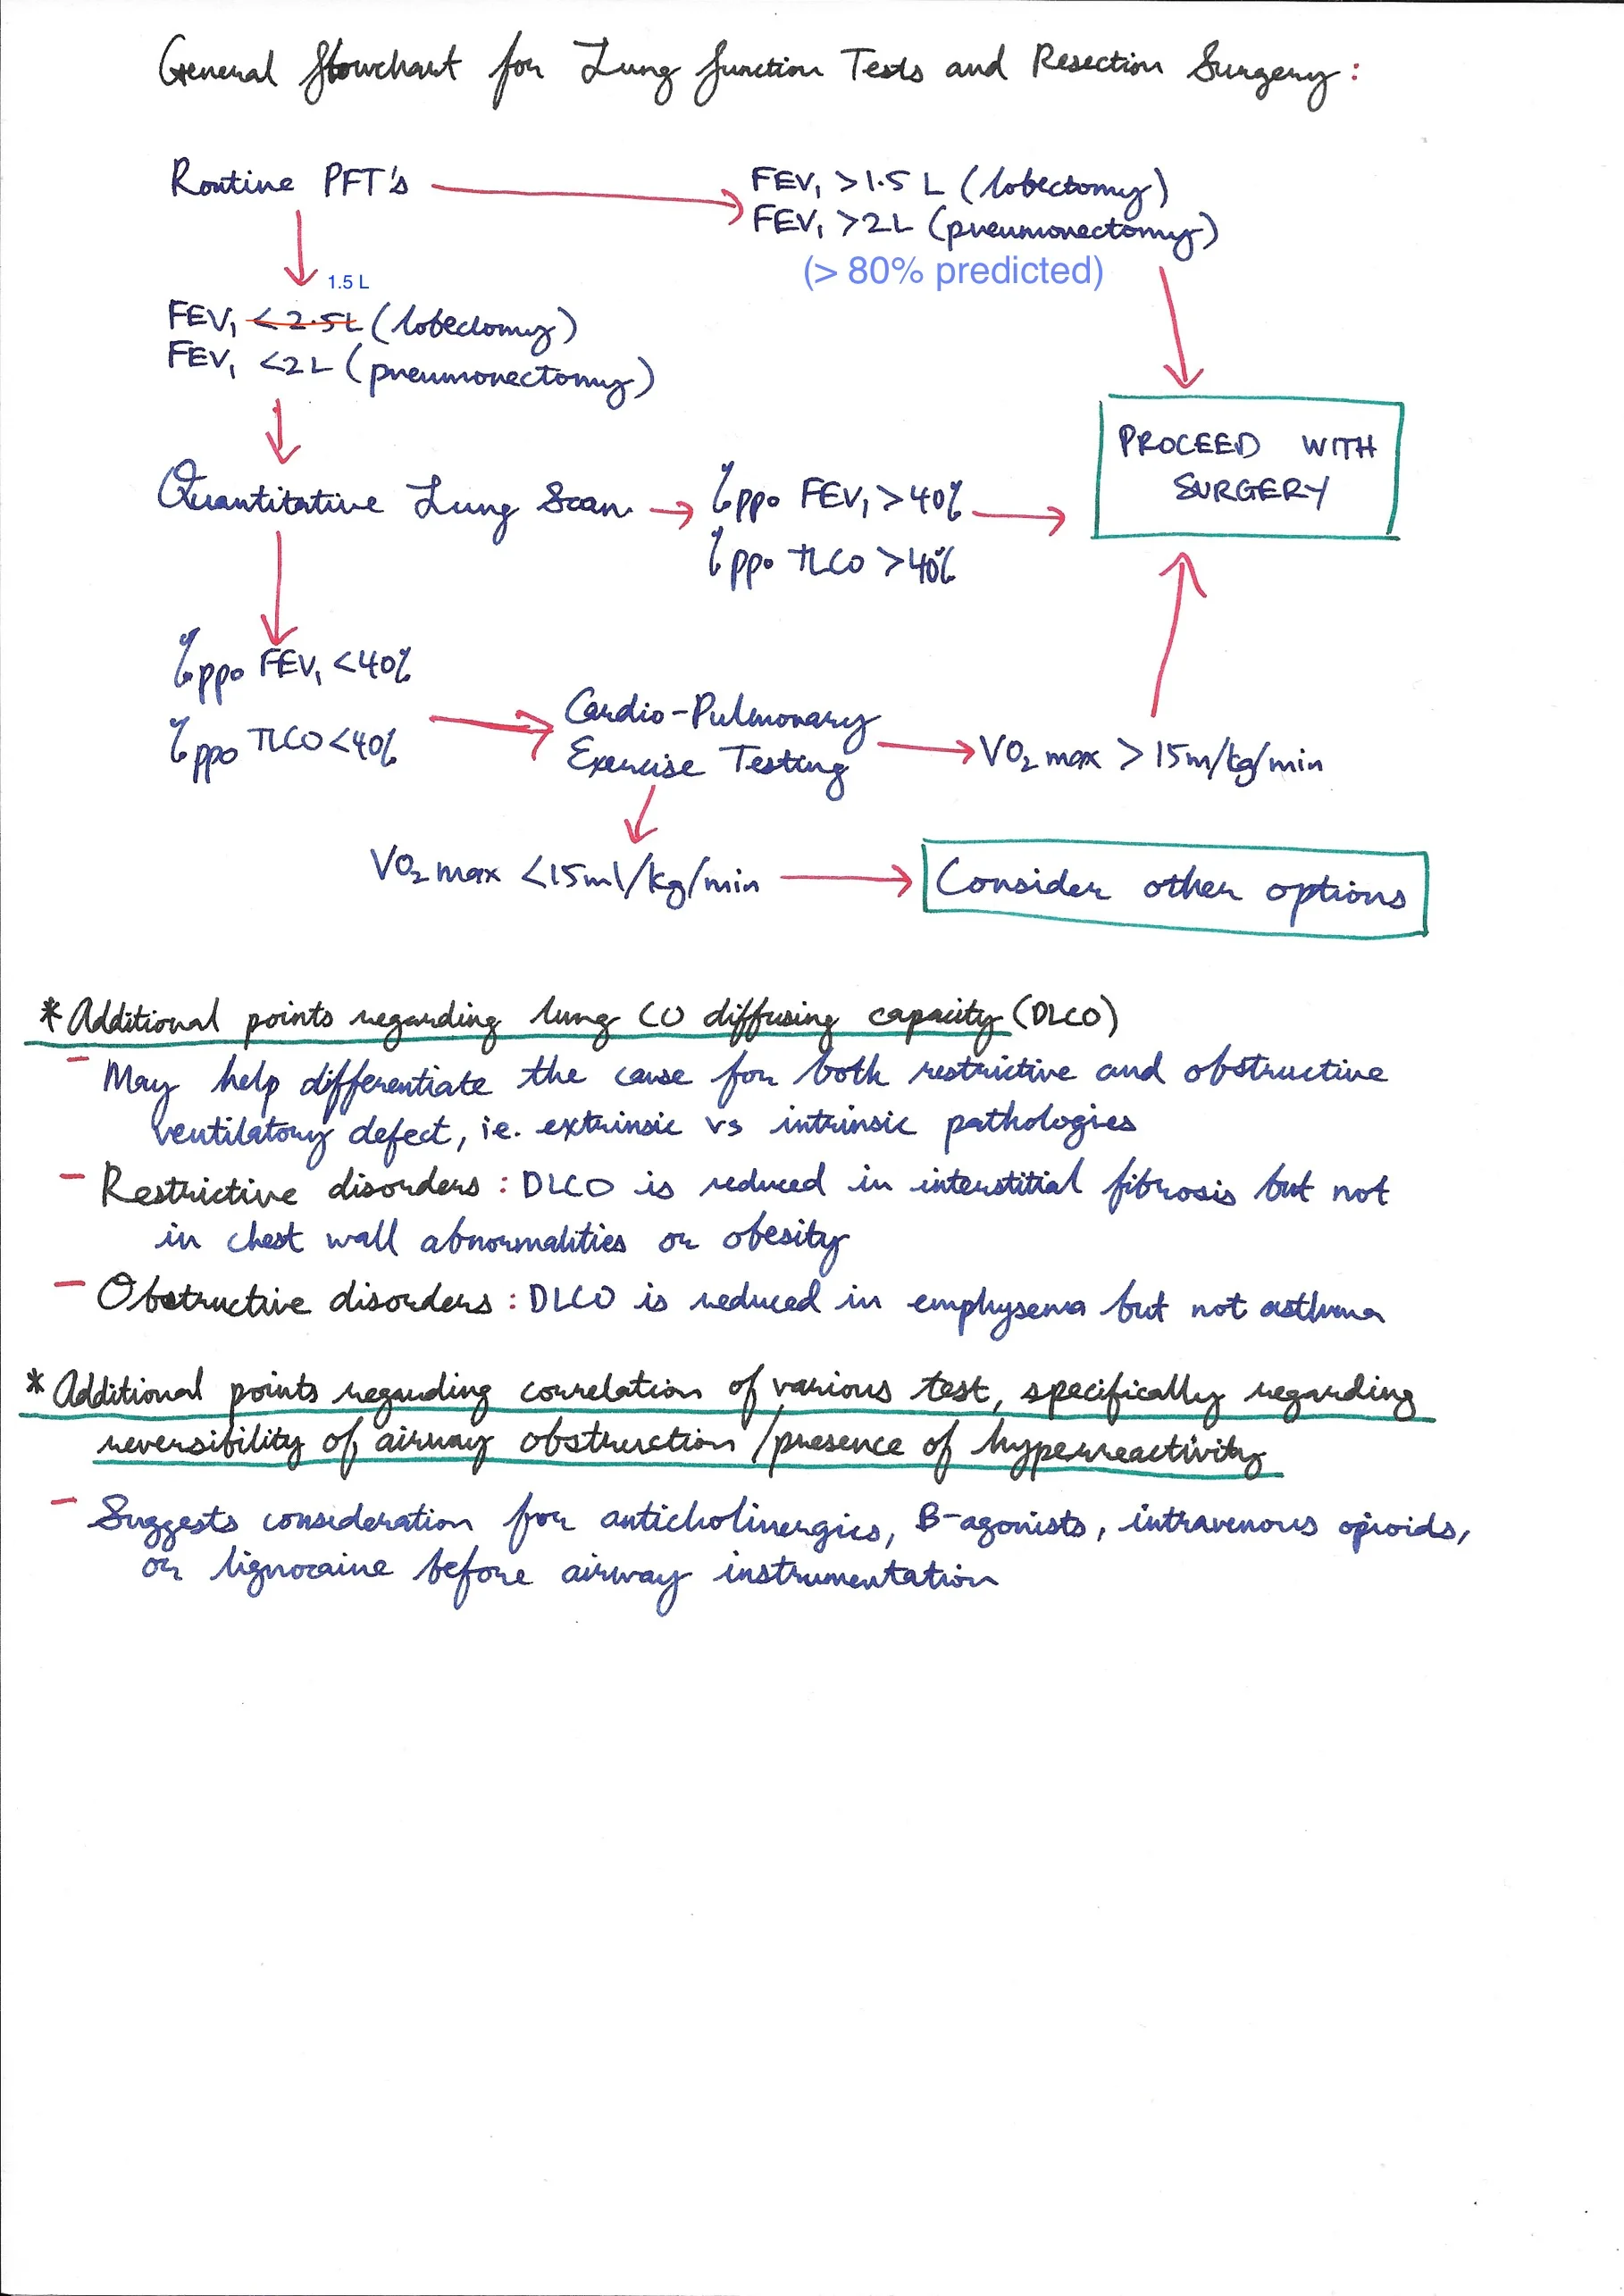 General flowchart for Lung function Tests and Resection Surgery:
Routine PFT's
FEV₁ >1.5 L (lobectomy)
FEV₁ >2L (pneumonectomy)
(> 80% predicted)
1.5 L
FEV₁ <2.5L (lobectomy)
FEV₁ <2L (pneumonectomy)
Quantitative Lung Scan
%ppo FEV₁ >40%
%ppo TLCO >40%
PROCEED WITH
SURGERY
%ppo FEV₁ <40%
%ppo TLCO <40%
Cardio-Pulmonary
Exercise Testing
VO₂ max > 15m/kg/min
VO₂ max <15ml/kg/min
Consider other options
*Additional points regarding lung CO diffusing capacity (DLCO)
- May help differentiate the cause for both restrictive and obstructive
ventilatory defect, i.e. extrinsic vs intrinsic pathologies
- Restrictive disorders: DLCO is reduced in interstitial fibrosis but not
in chest wall abnormalities or obesity
- Obstructive disorders: DLCO is reduced in emphysema but not asthma
*Additional points regarding correlation of various test, specifically regarding
reversibility of airway obstruction/presence of hyperreactivity
- Suggests consideration for anticholinergics, B-agonists, intravenous opioids,
or lignocaine before airway instrumentation